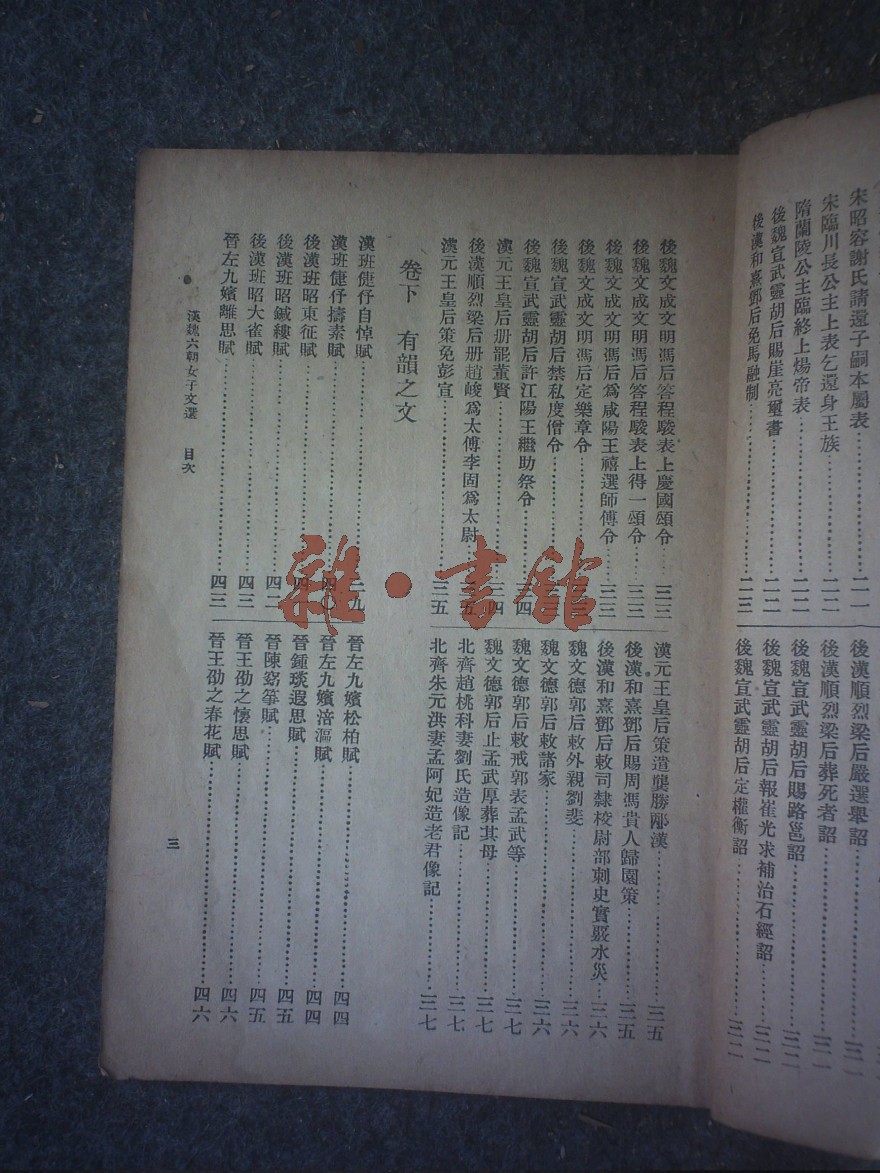 宋昭容謝氏請還子嗣本屬表……二一
宋臨川長公主上表乞還身王族……二一
隋蘭陵公主臨終上煬帝表……二二
後魏宣武靈胡后賜崔亮璽書……二二
後漢和熹鄧后免馬融制……二三
後漢順烈梁后嚴選舉詔
後漢順烈梁后葬死者詔
後魏宣武靈胡后賜路邕詔
後魏宣武靈胡后報崔光求補治石經詔
後魏宣武靈胡后定權衡詔
後魏文成文明馮后答程駿表上慶國頌令……三三
後魏文成文明馮后答程駿表上得一頌令……三三
後魏文成文明馮后爲咸陽王禧選師傅令……三三
後魏文成文明馮后定樂章令
後魏宣武靈胡后禁私度僧令
後魏宣武靈胡后許江陽王繼助祭令……三四
漢元王皇后册罷董賢……三四
後漢順烈梁后册趙峻爲太傅李固爲太尉
漢元王皇后策免彭宣……三五
漢元王皇后策遣龔勝邴漢……三五
後漢和熹鄧后賜周馮貴人歸園策……三五
後漢和熹鄧后敕司隸校尉部刺史實覈水災……三六
魏文德郭后敕諸家……三六
魏文德郭后敕外親劉斐……三六
魏文德郭后敕戒郭表孟武等……三七
魏文德郭后止孟武厚葬其母……三七
北齊趙桃科妻劉氏造像記……三七
北齊朱元洪妻孟阿妃造老君像記……三七
卷下　有韻之文
漢班倢伃自悼賦……三九
漢班倢伃擣素賦……四〇
後漢班昭東征賦
後漢班昭鍼縷賦……四二
後漢班昭大雀賦……四三
晉左九嬪離思賦……四三
晉左九嬪松柏賦……四四
晉左九嬪涪漚賦……四四
晉鍾琰遐思賦……四五
晉陳窈箏賦……四五
晉王劭之懷思賦……四六
晉王劭之春花賦……四六
漢魏六朝女子文選　目次
三
雜·書館